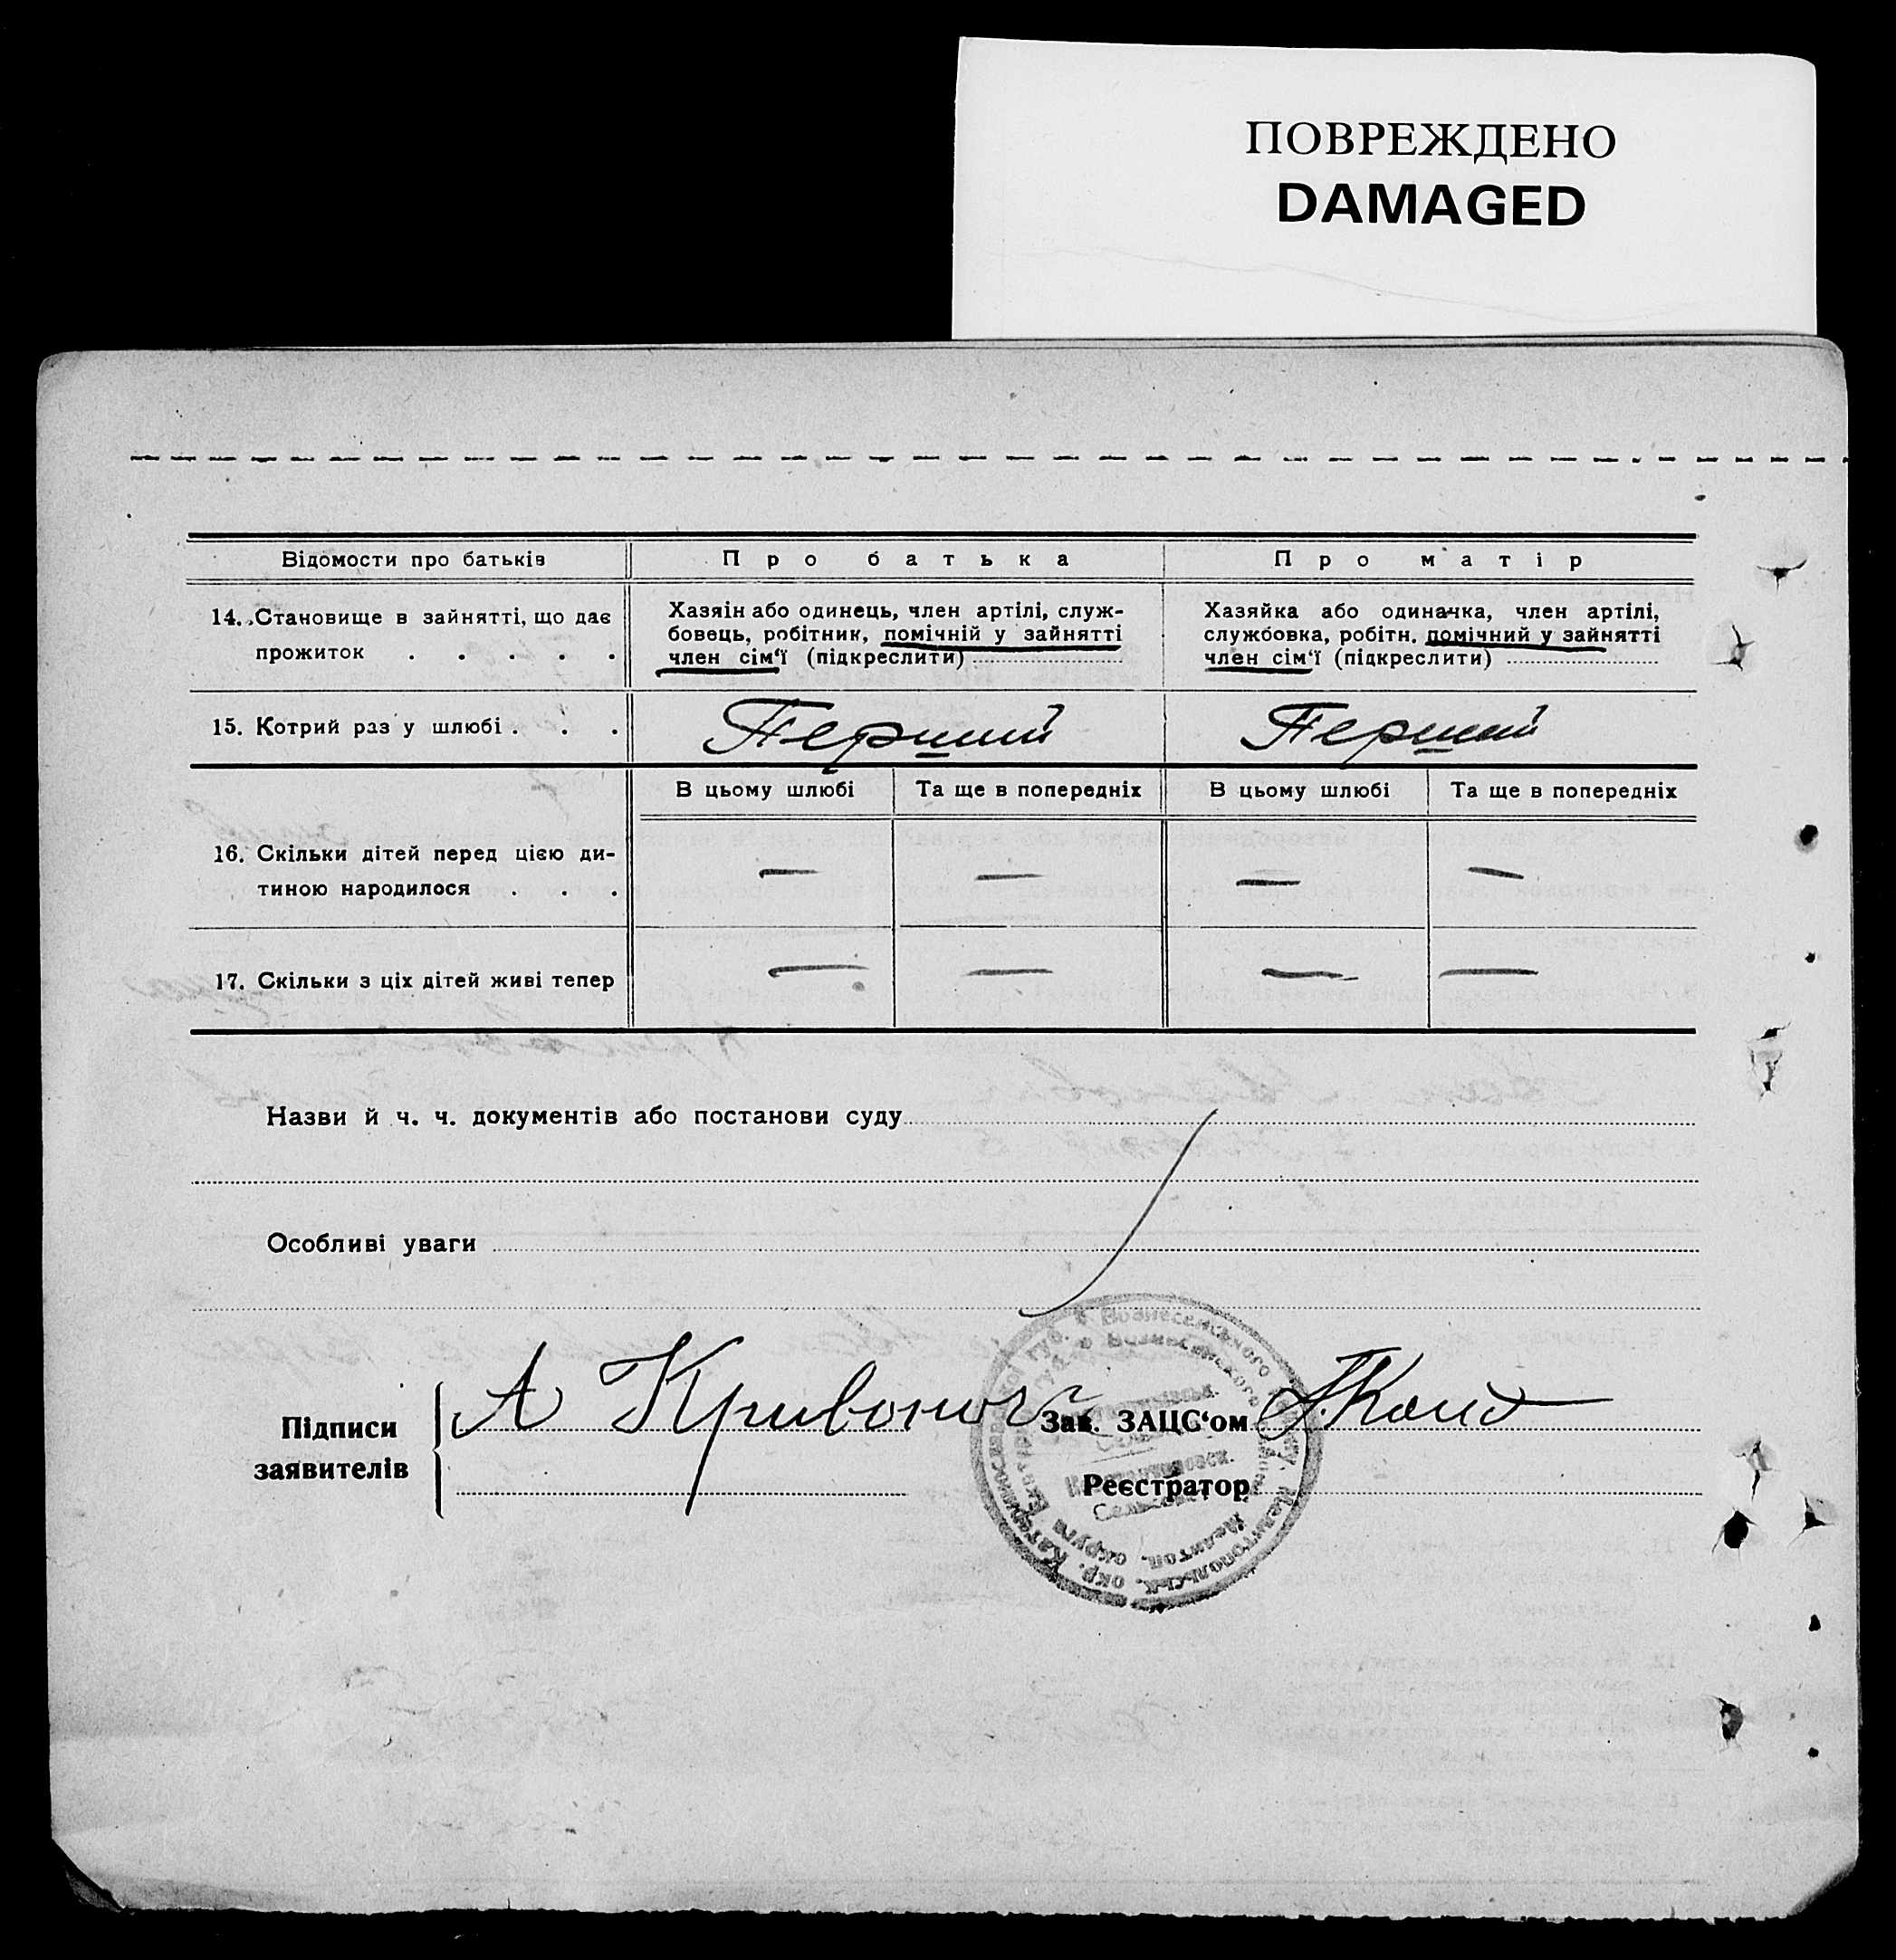 ПОВРЕЖДЕНО
DAMAGED
Відомости про батьків Про батька Про матір
14. Становище в зайнятті, що дає
прожиток . . . . .
Хазяін або одинець, член артілі, служ-
бовець, робітник, помічній у зайнятті
член сім‘ї (підкреслити)
Хазяйка або одиначка, член артілі,
службовка, робітн. помічний у зайнятті
член сім‘ї (підкреслити)
15. Котрий раз у шлюбі . . . Перший Перший
В цьому шлюбі Та ще в попередніх В цьому шлюбі Та ще в попередніх
16. Скільки дітей перед цією ди-
тиною народилося . . . — — — —
17. Скільки з ціх дітей живі тепер — — — —
Назви й ч. ч. документів або постанови суду
Особливі уваги
Підписи
заявителів
А Кривонос
Зав. ЗАЦС‘ом
Реєстратор
Вознесенського
Мелітопольськ. окр. Катеринославської губ.
Мелитоп. округа